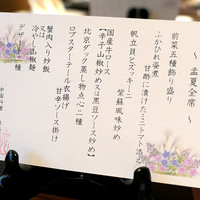 ～孟夏全席～
前菜五種飾り盛り
ふかひれ姿煮
甘酢に漬けたミニトマト添え
帆立貝とズッキーニ
紫蘇風味炒め
国産牛ロース
【辛子山椒炒め又は黒豆ソース炒め】
北京ダック蒸し物点心二種
ロブスターテール衣揚げ
甘辛ソース掛け
蟹肉入り炒飯
又は
冷やし山椒麺
デザート
種